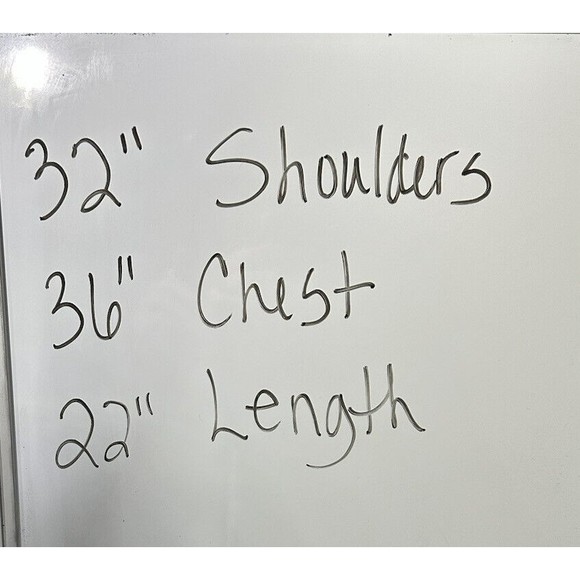 32" Shoulders
36" Chest
22" Length